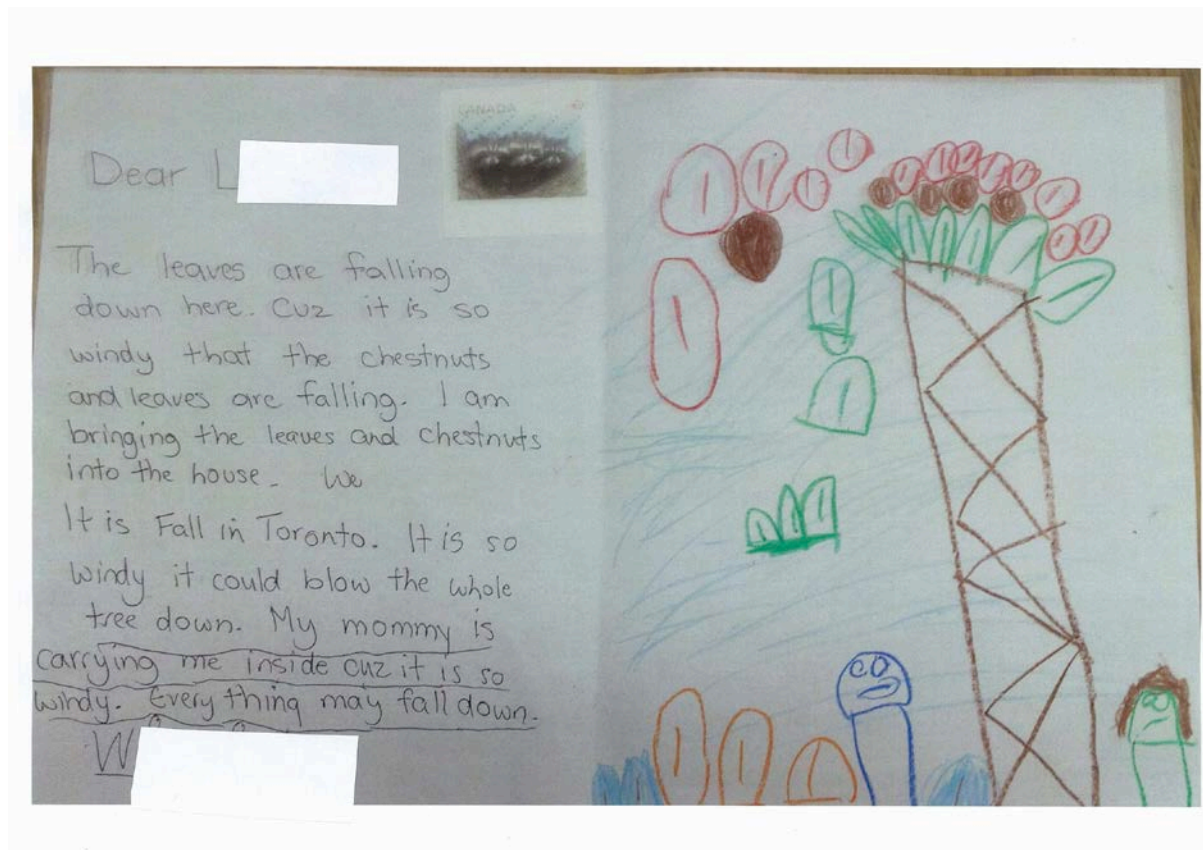 Dear L
CANADA
The leaves are falling
down here. Cuz it is so
windy that the chestnuts
and leaves are falling. I am
bringing the leaves and chestnuts
into the house. We
It is Fall in Toronto. It is so
windy it could blow the whole
tree down. My mommy is
carrying me inside cuz it is so
windy. Every thing may fall down.
W